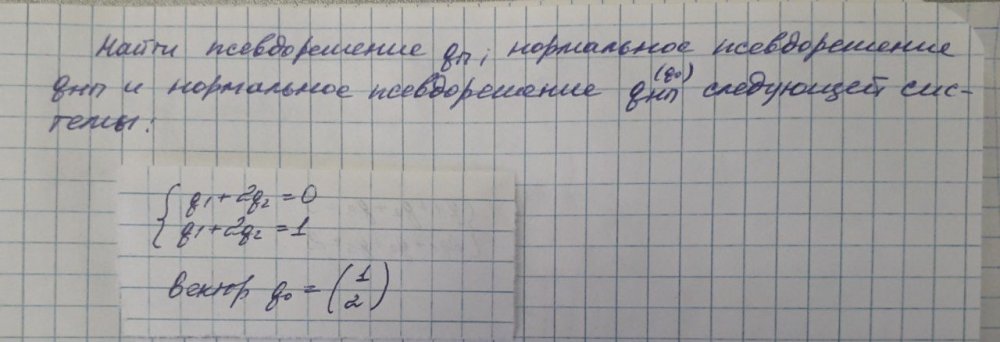 Найти псевдорешение qп, нормальное псевдорешение
qнп и нормальное псевдорешение qнп^(q₀) следующей сис-
темы:
{ q₁ + 2q₂ = 0
{ q₁ + 2q₂ = 1
вектор q₀ = (1
2)